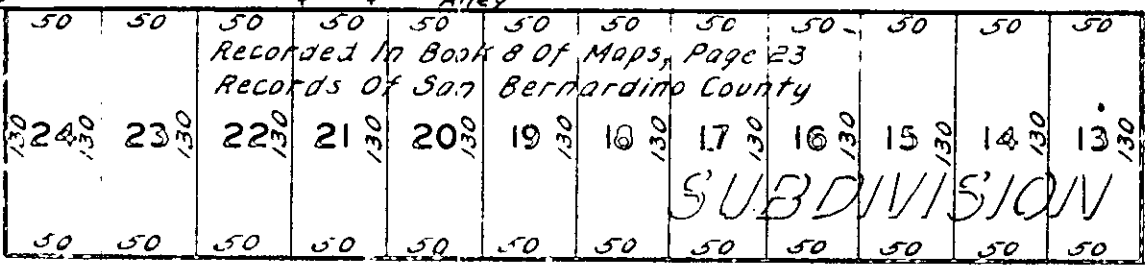 Alley
50 50 50 50 50 50 50 50 50 50 50 50
Recorded In Book 8 Of Maps, Page 23
Records Of San Bernardino County
130 24 130 23 130 22 130 21 130 20 130 19 130 18 130 17 130 16 130 15 130 14 130 13 130
SUBDIVISION
50 50 50 50 50 50 50 50 50 50 50 50